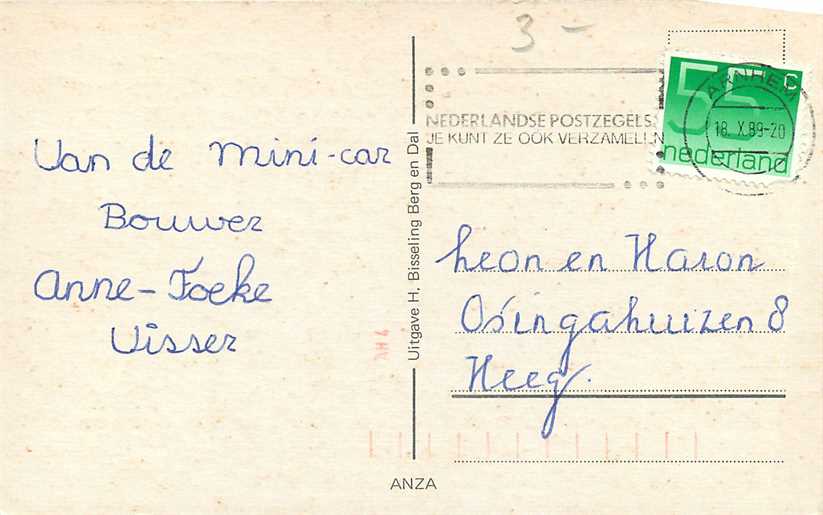 3 –
NEDERLANDSE POSTZEGELS.
JE KUNT ZE OOK VERZAMELEN
55 c
nederland
ARNHEM
18. X.89-20
Van de mini-car
Bouwer
Anne-Foeke
Visser
Uitgave H. Bisseling Berg en Dal
AH 4
heon en Haron
Osingahuizen 8
Heeg.
ANZA